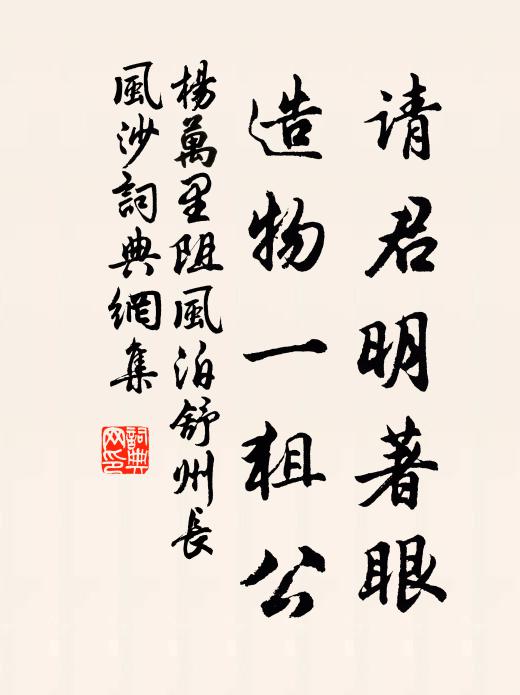 请君明著眼
造物一狙公
楊萬里阻風泊舒州長
風沙詞典網集
詞典
网印